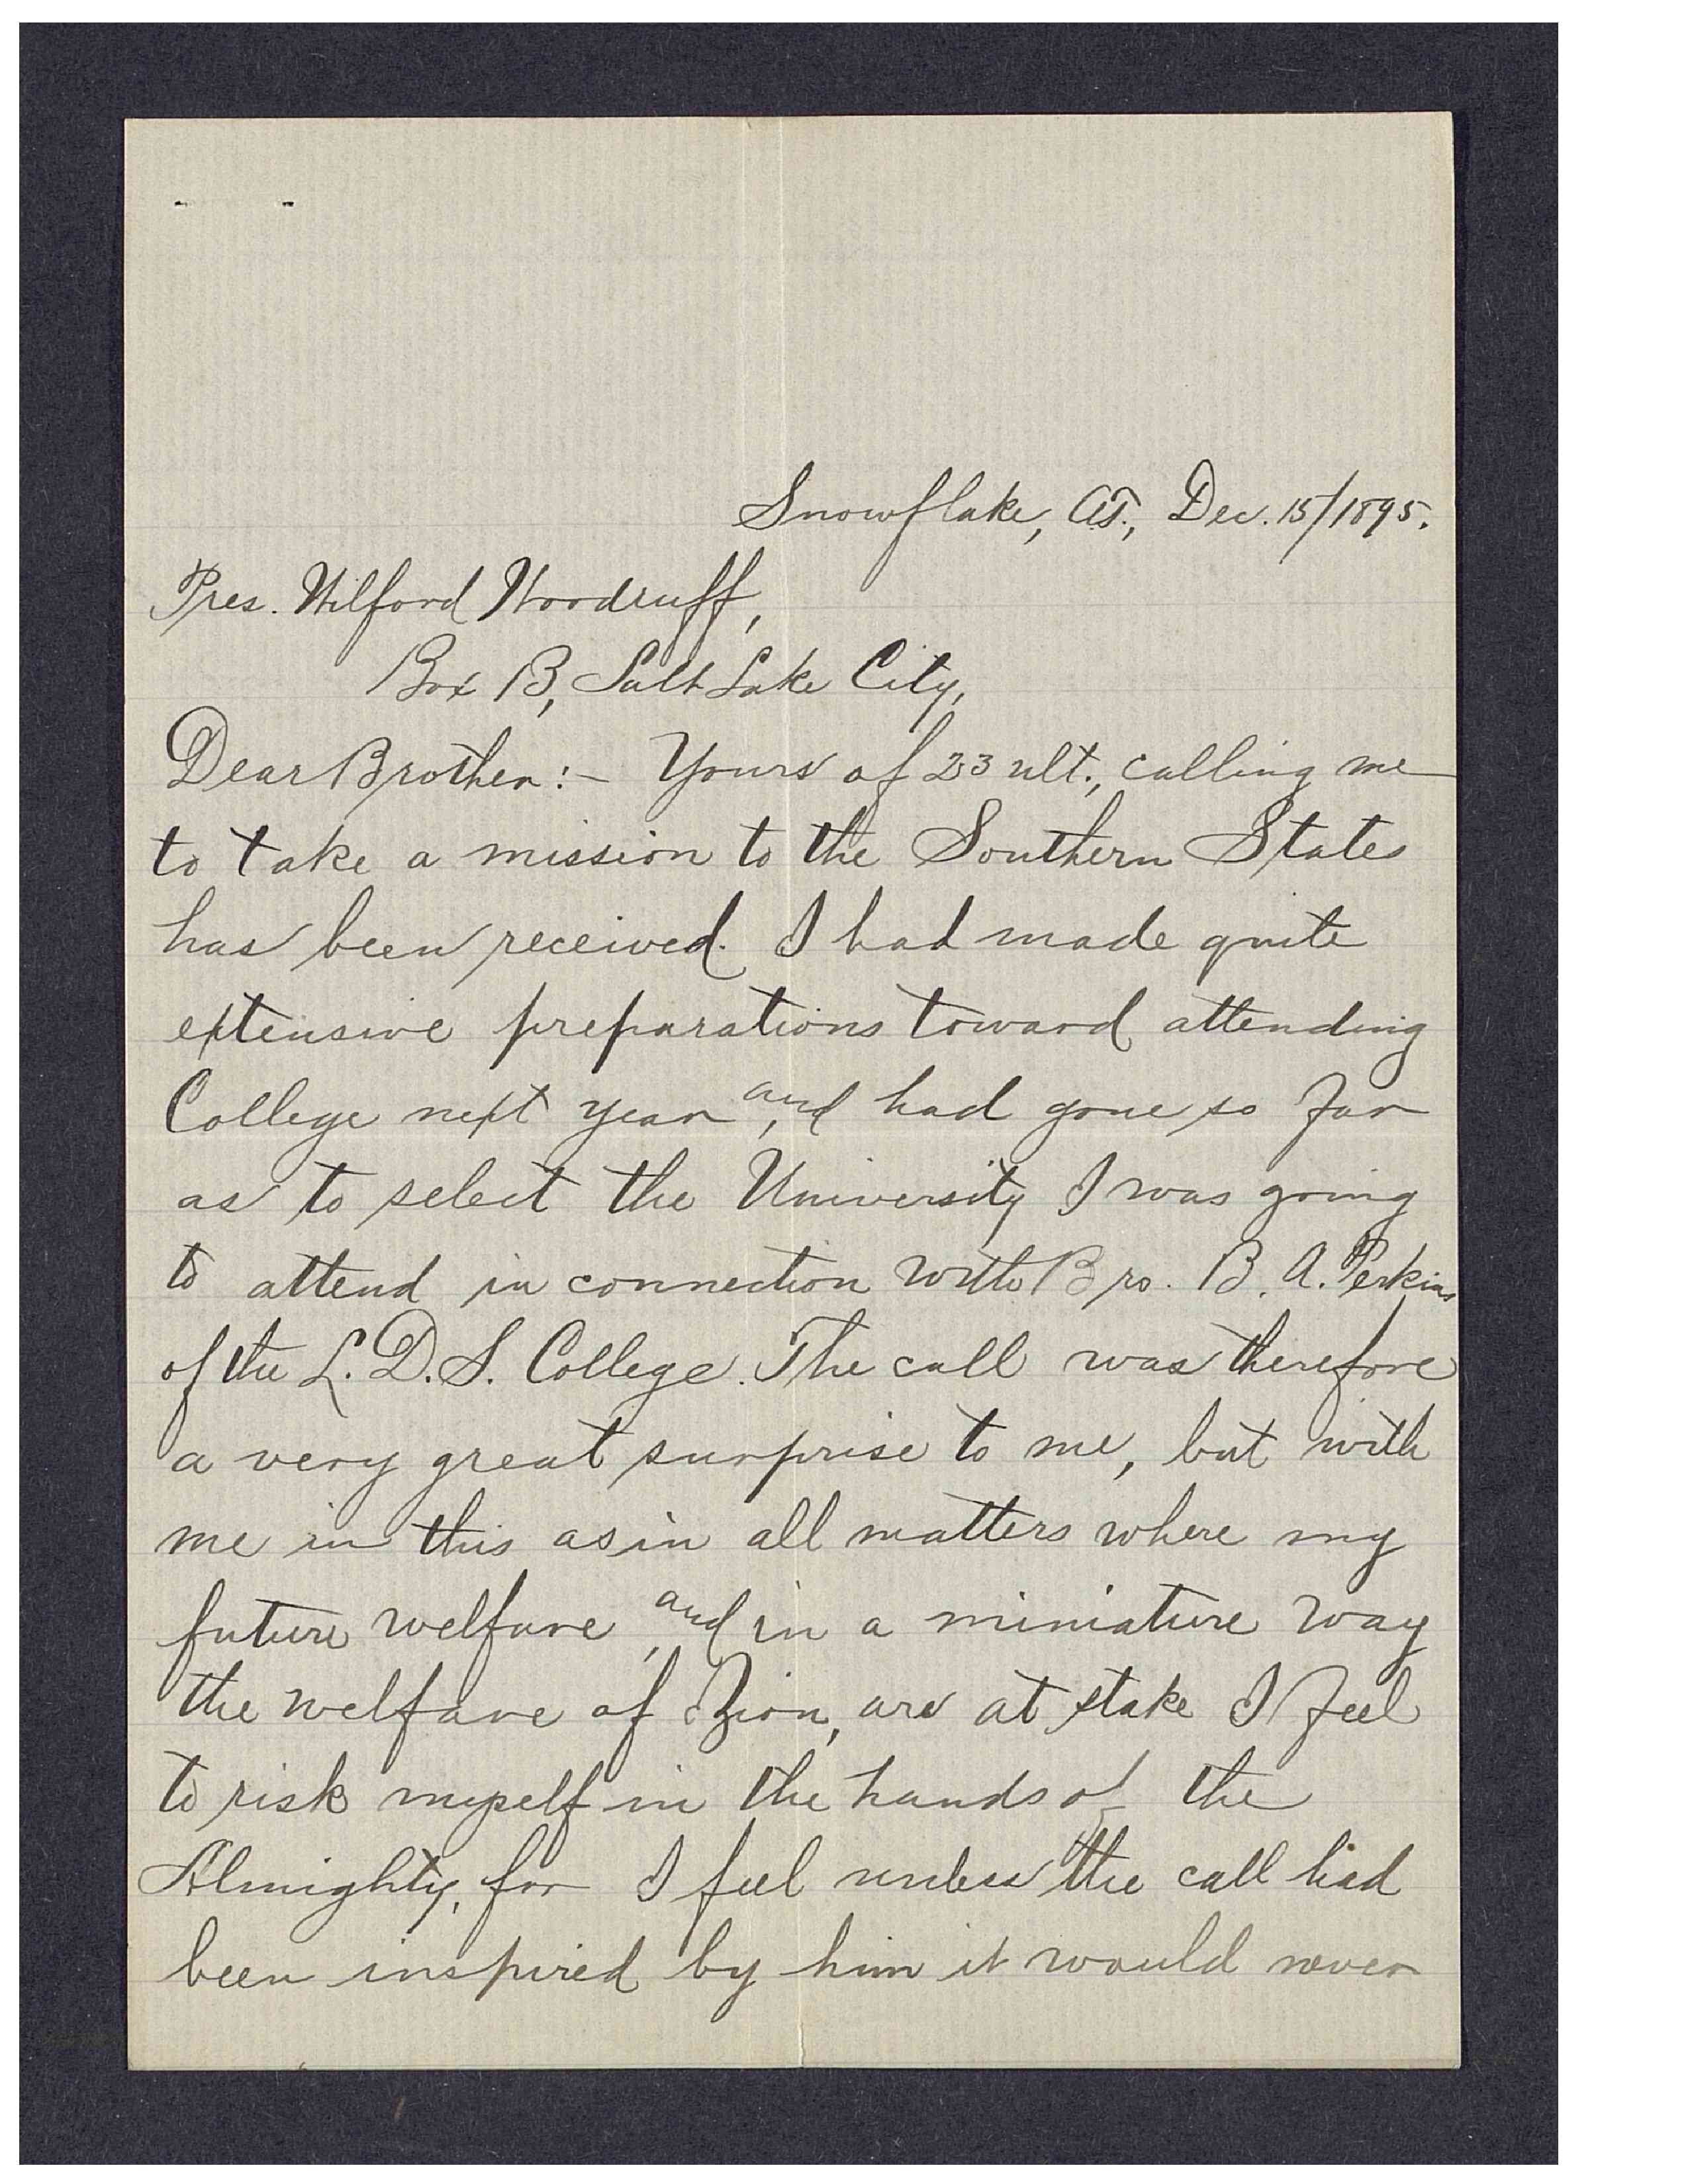 Snowflake, A.T., Dec. 15/1895.
Pres. Wilford Woodruff,
Box B, Salt Lake City,
Dear Brother:- Yours of 23 ult., calling me
to take a mission to the Southern States
has been received. I had made quite
extensive preparations toward attending
College next year, and had gone so far
as to select the University I was going
to attend in connection with Bro. B. A. Perkins
of the L. D. S. College. The call was therefore
a very great surprise to me, but with
me in this as in all matters where my
future welfare, and in a miniature way
the welfare of Zion, are at stake I feel
to risk myself in the hands of the
Almighty, for I feel unless the call had
been inspired by him it would never